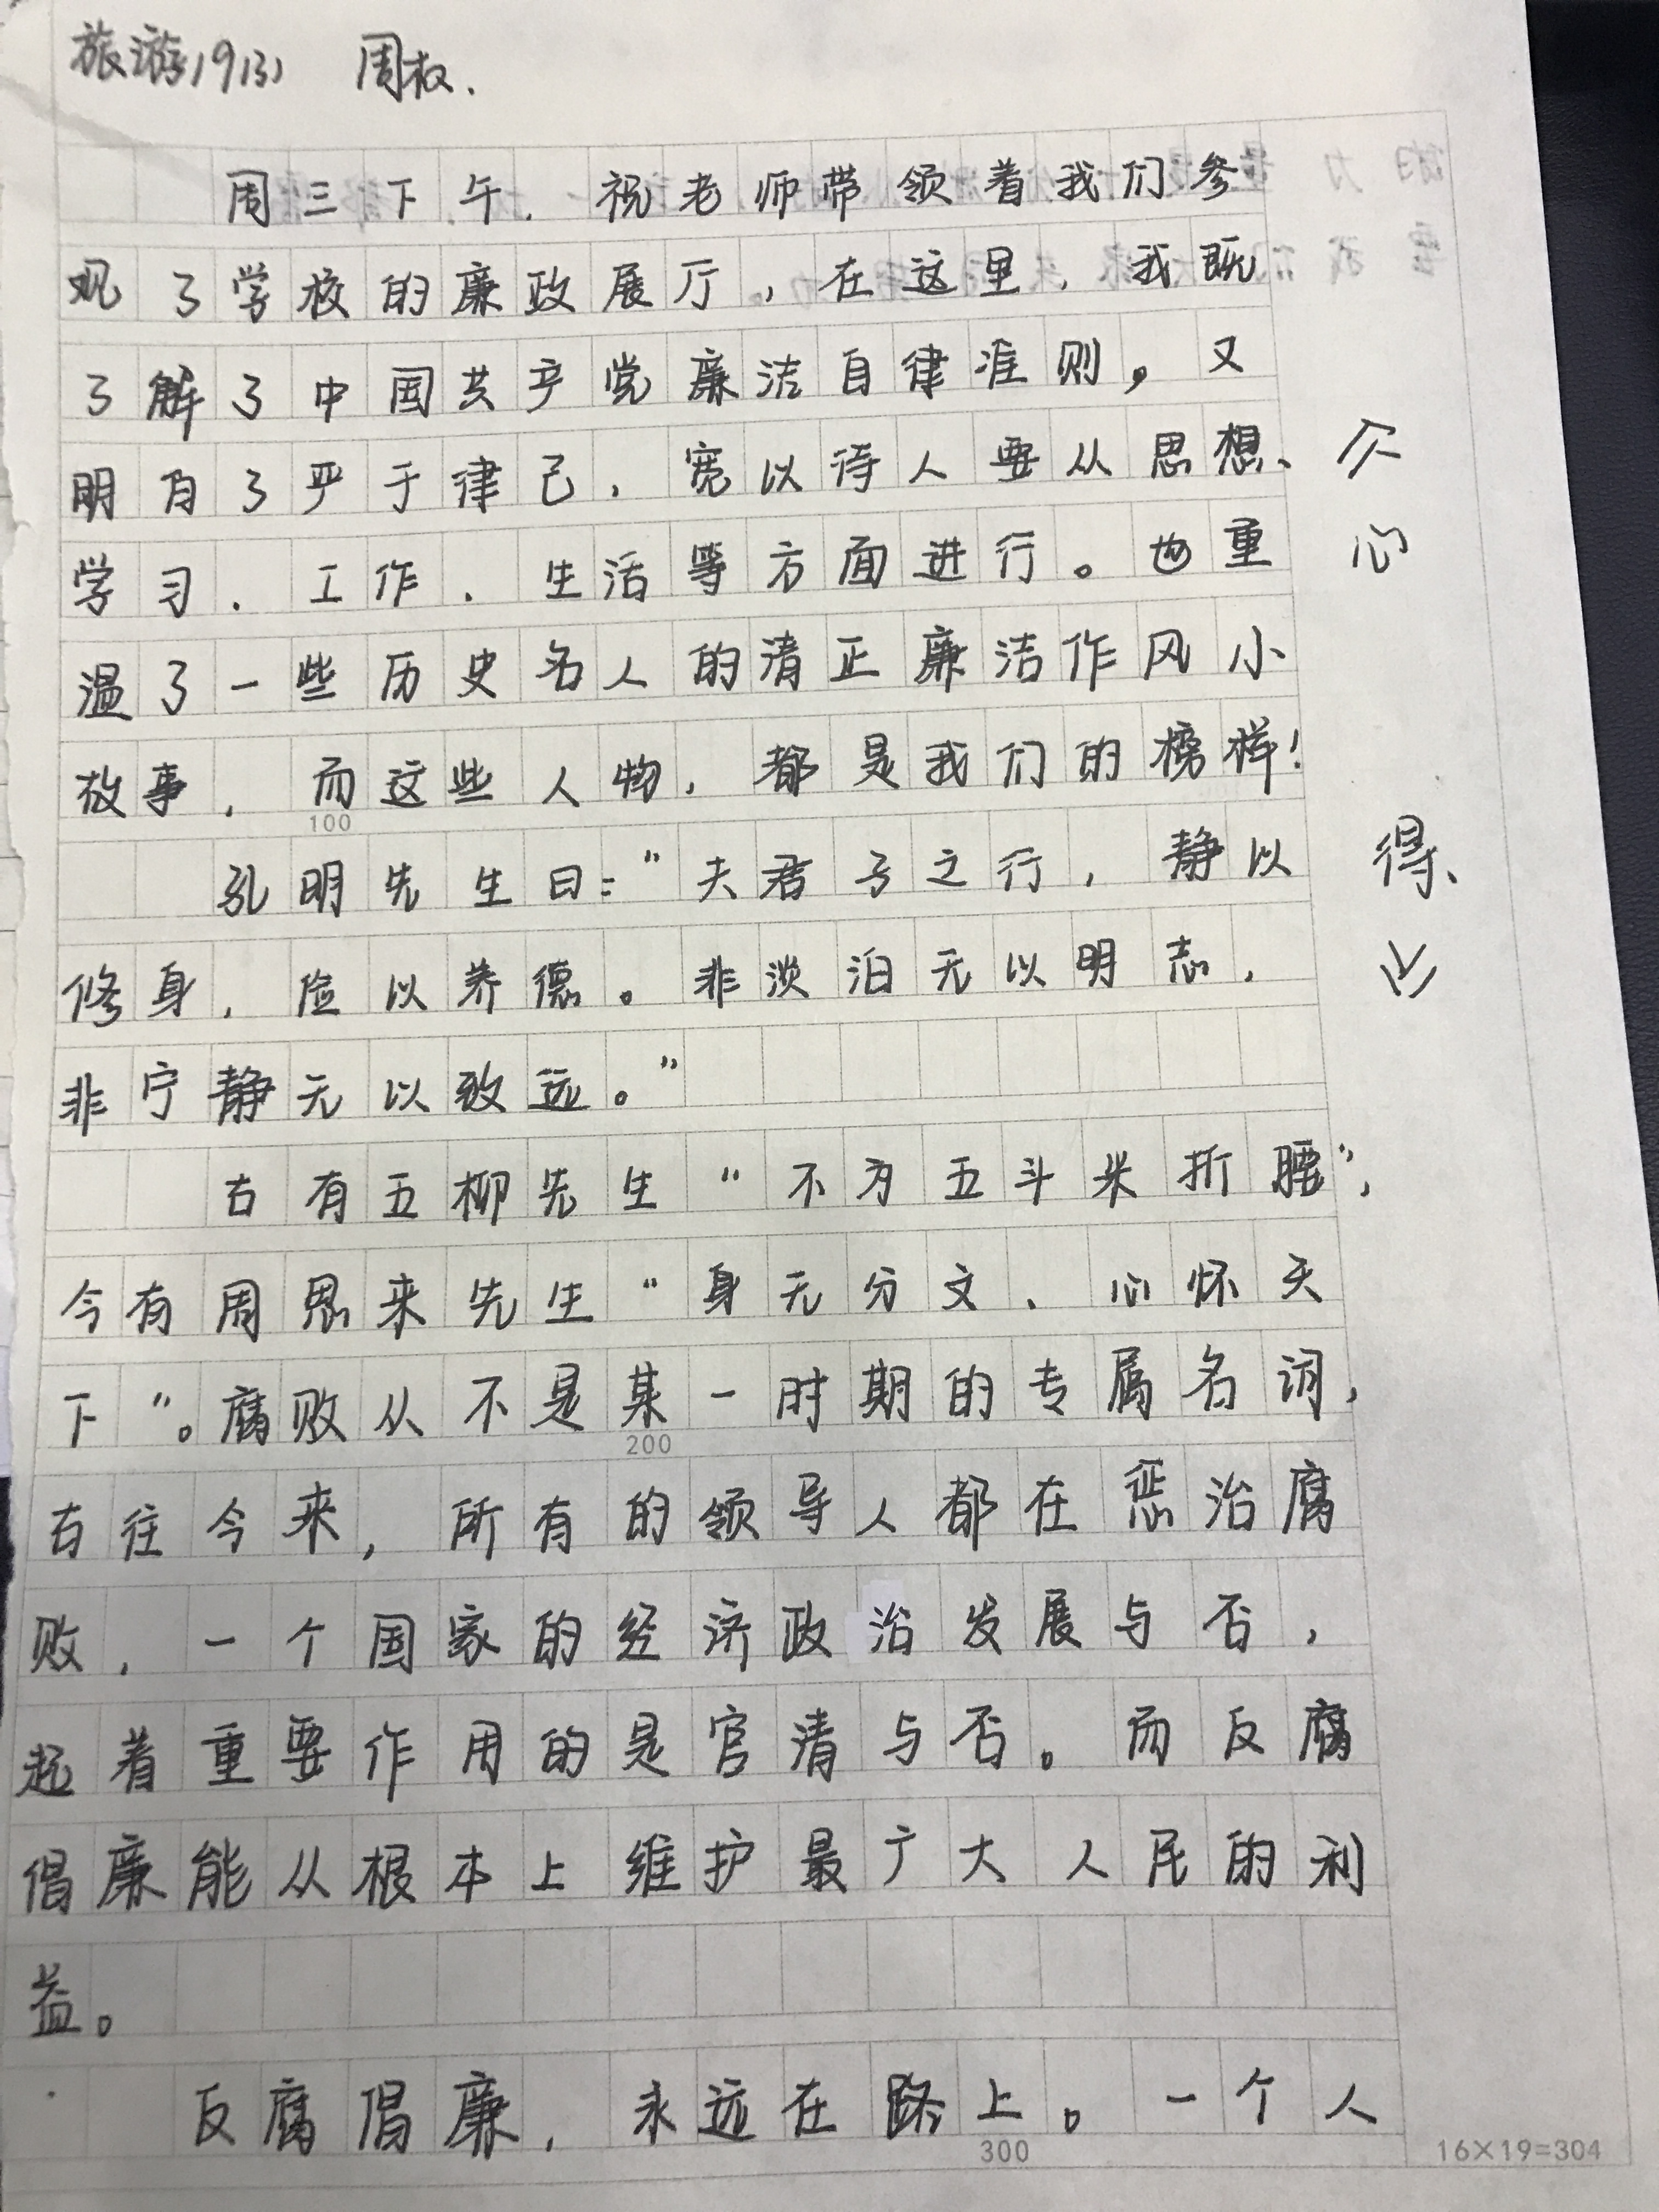 旅游19(3) 周权.
周三下午，祝老师带领着我们参
观了学校的廉政展厅，在这里，我既
了解了中国共产党廉洁自律准则，又
明白了严于律己，宽以待人要从思想、
学习、工作、生活等方面进行。也重
温了一些历史名人的清正廉洁作风小
故事，而这些人物，都是我们的榜样！
孔明先生曰："夫君子之行，静以
修身，俭以养德。非淡泊无以明志，
非宁静无以致远。"
古有五柳先生"不为五斗米折腰"，
今有周恩来先生"身无分文、心怀天
下"。腐败从不是某一时期的专属名词，
古往今来，所有的领导人都在惩治腐
败，一个国家的经济政治发展与否，
起着重要作用的是官清与否。而反腐
倡廉能从根本上维护最广大人民的利
益。
反腐倡廉，永远在路上。一个人
心
得
100
200
300
16×19=304